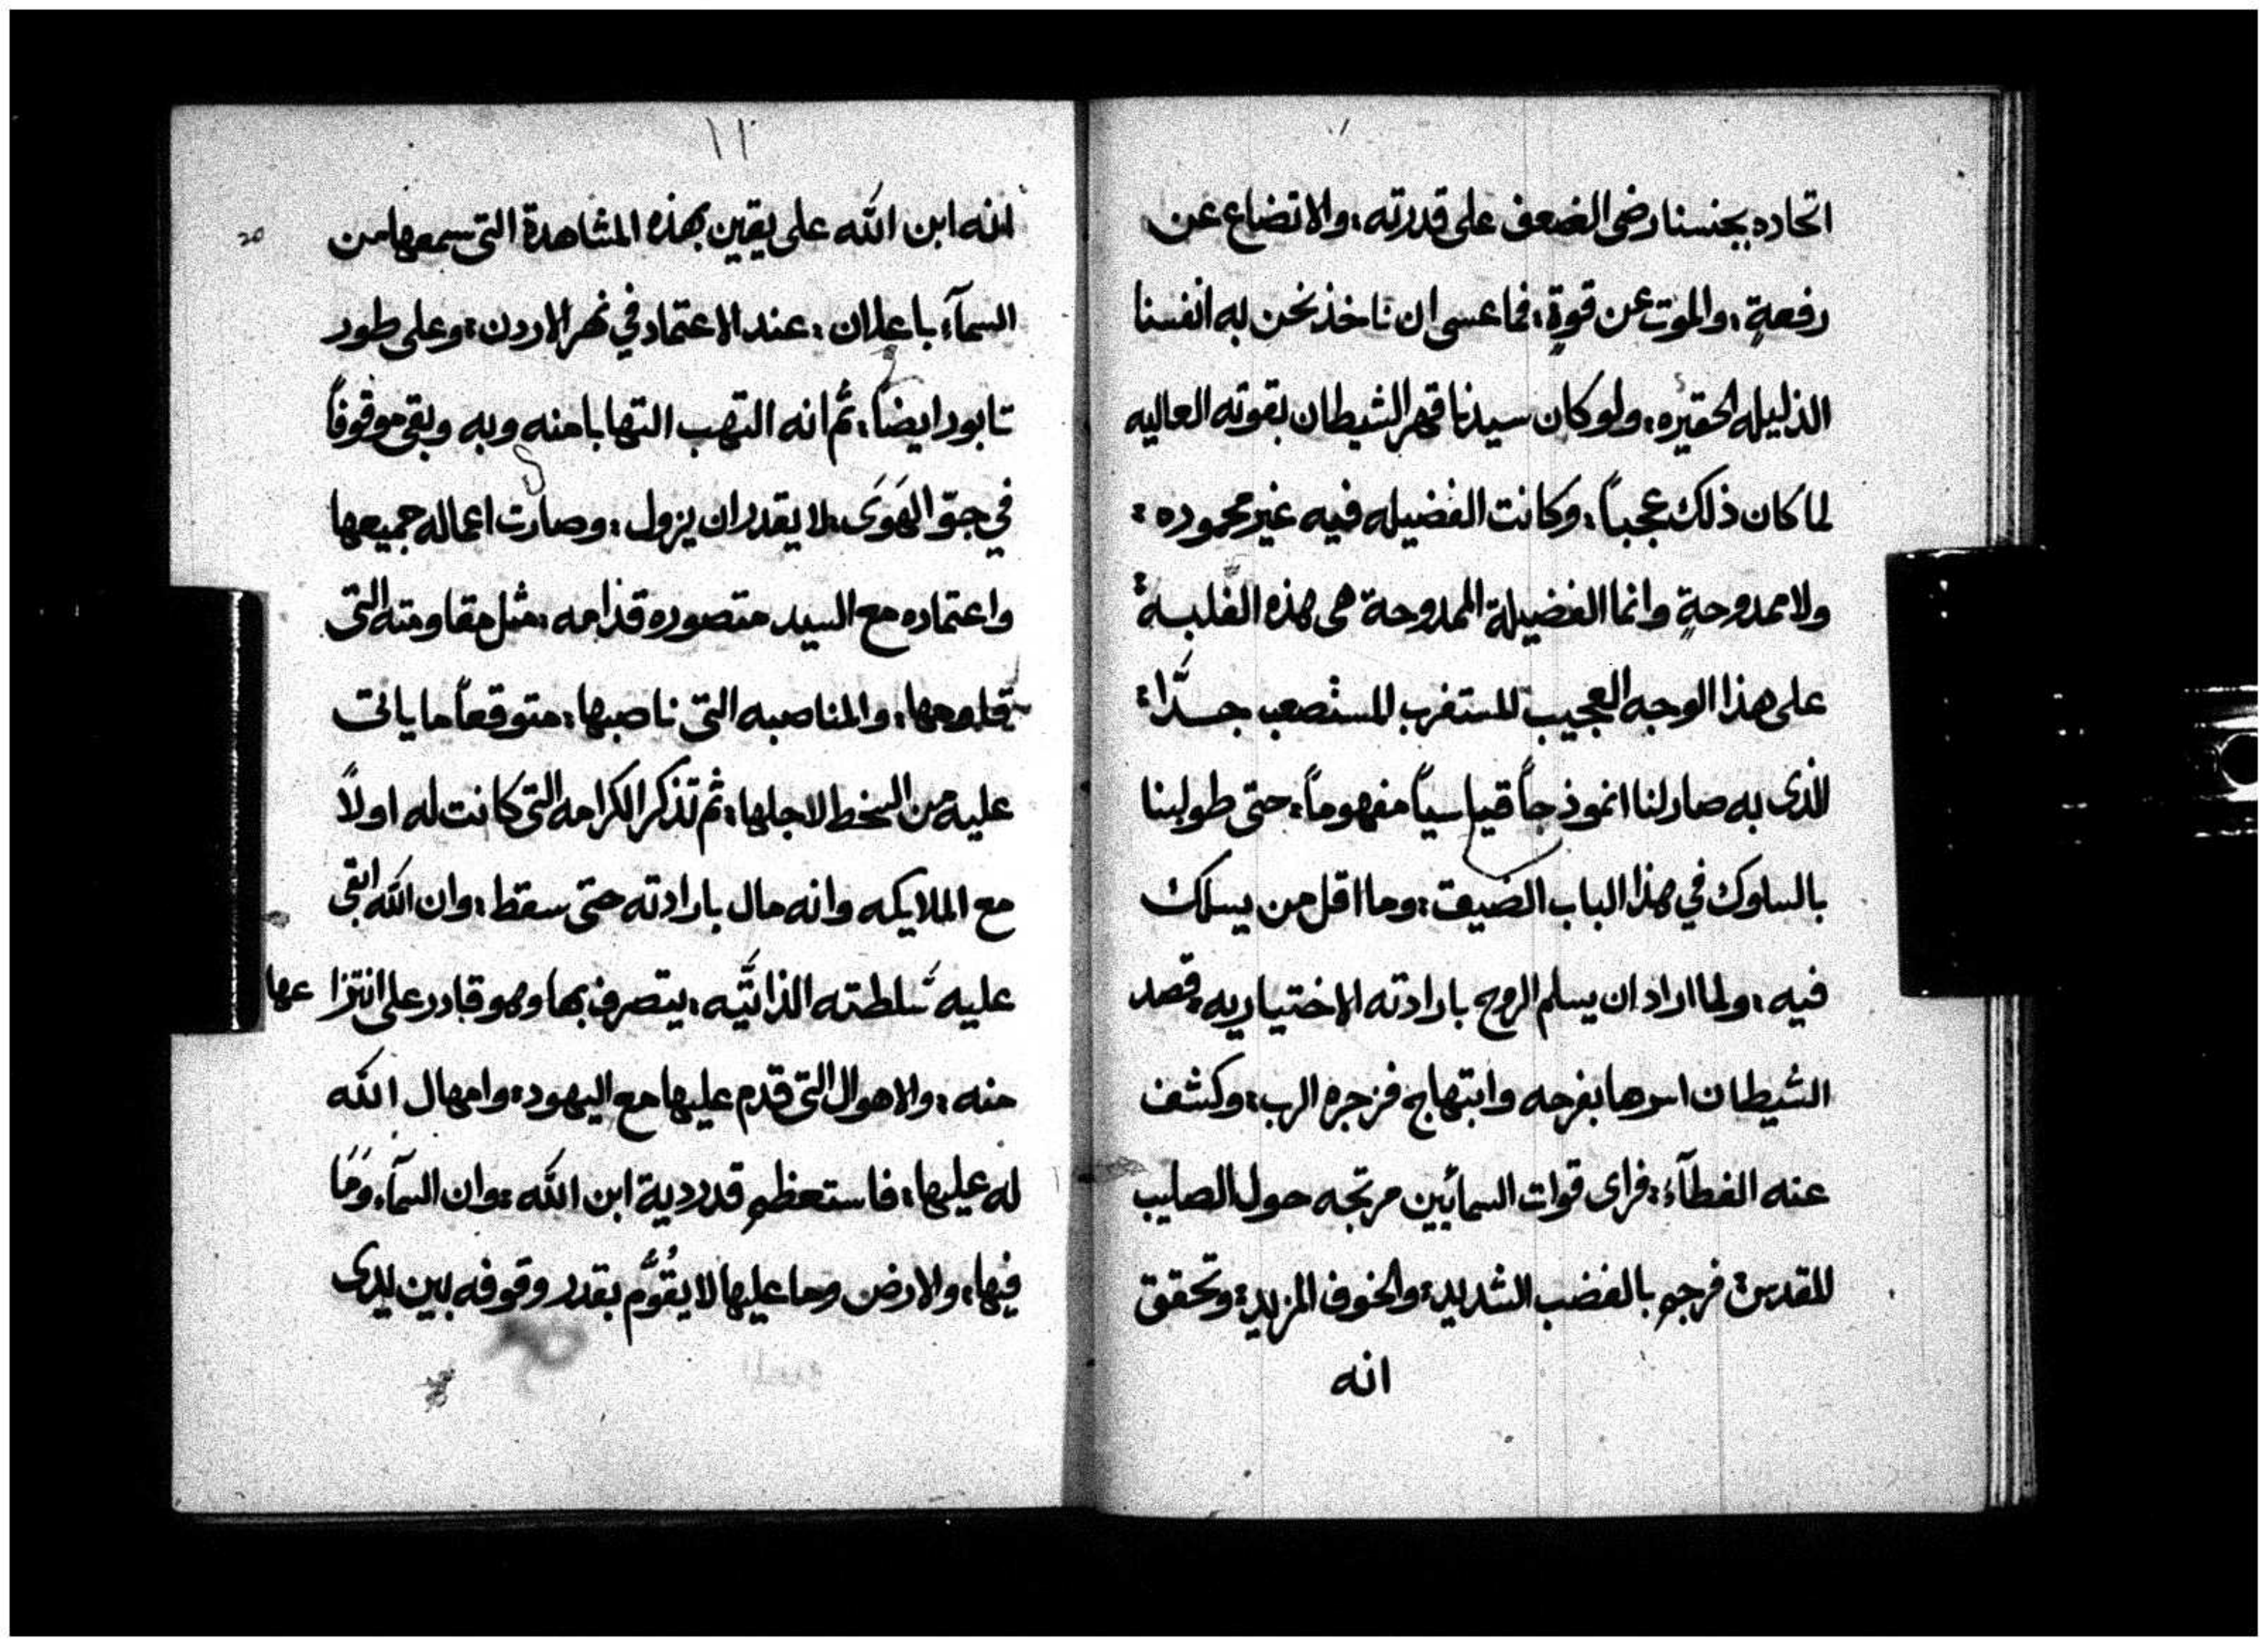 اتحاده بجنسنا رضى الضعف على قدرته، والاتضاع عن
رفعةٍ، والموت عن قوةٍ، فما عسى ان ناخذ نحن به انفسنا
الذليله الحقيره، ولو كان سيدنا قهر الشيطان بقوته العاليه
لما كان ذلك عجباً، وكانت الفضيله فيه غير محموده:
ولا ممدوحةٍ وانما الفضيلة الممدوحة هى هذه الغلبة:
على هذا الوجه العجيب المستغرب المستصعب جدًّا:
الذى به صار لنا انموذجاً قياسياً مفهوماً، حتى طولبنا
بالسلوك في هذا الباب الضيق، وما اقل من يسلك
فيه، ولما اراد ان يسلم الروح بارادته الاختياريه، قصد
الشيطان اسرها بفرحه وابتهاج فزجره الرب، وكشف
عنه الغطآء، فراى قوات السمائين مرتجه حول الصليب
المقدس، فرجم بالغضب الشديد، والخوف المزيد، وتحقق
انه
١١
انه ابن الله على يقين بهذه المشاهدة التى سمعها من
20
السمآء باعلان، عند الاعتماد في نهر الاردن، وعلى طور
تابور ايضاً، ثم انه التهب التهابا منه وبه وبقى موقوفاً
في جوّ الهَوَى لا يقدر ان يزول، وصارت اعماله جميعها
واعتماده مع السيد متصوره قدامه، مثل مقاومته التى
قاومها، والمناصبه التى ناصبها، متوقعاً ما ياتى
عليه من السخط لاجلها، ثم تذكر الكرامه التى كانت له اولاً
مع الملايكه وانه مال بارادته حتى سقط، وان الله ابقى
عليه سلطته الذاتيَّه، يتصرف بها وهو قادر على انتزاعها
منه، والاهوال التى قدم عليها مع اليهود، وامهال الله
له عليها، فاستعظم قدر دية ابن الله، وان السمآء وَمَا
فيها، والارض وما عليها لا يقُوَّم بقدر وقوفه بين يدى